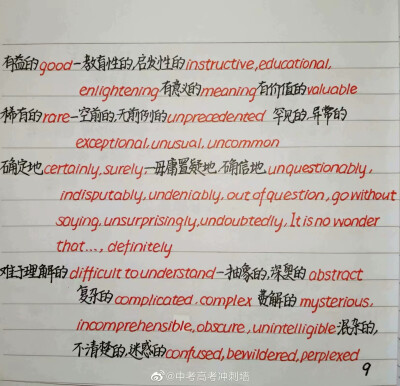 有益的good—教育性的,启发性的instructive,educational,
enlightening 有意义的meaning 有价值的valuable
稀有的rare—空前的,无前例的unprecedented 罕见的,异常的
exceptional,unusual,uncommon
确定地certainly,surely—毋庸置疑地,确信地,unquestionably,
indisputably,undeniably,out of question,go without
saying,unsurprisingly,undoubtedly,It is no wonder
that...,definitely
难于理解的difficult to understand—抽象的,深奥的abstract
复杂的complicated.complex 费解的mysterious,
incomprehensible,obscure,unintelligible 混杂的,
不清楚的,迷惑的confused,bewildered,perplexed
9
@中考高考冲刺墙